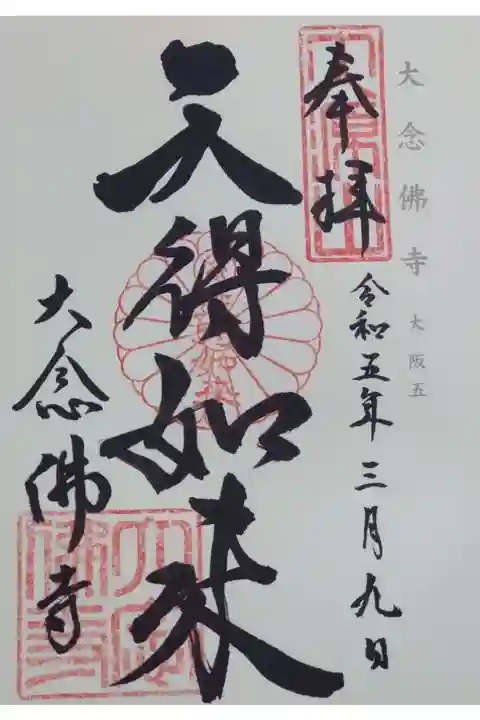 大念佛寺 大阪五
奉拝
令和五年三月九日
天得如来
大念佛寺